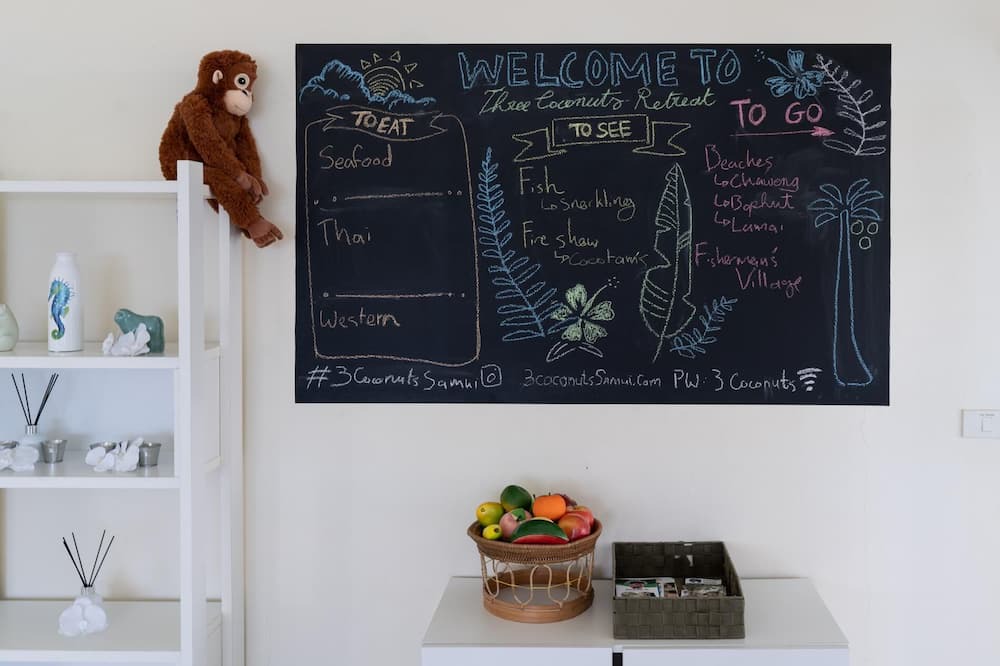 WELCOME TO
Three Coconuts Retreat
TO EAT
Seafood
Thai
Western
TO SEE
Fish
↳ Snorkling
Fire show
↳ Cocotam's
TO GO
Beaches
↳ Chawong
↳ Bophut
↳ Lamai
Fishermens
Village
#3CoconutsSamui
3coconutsSamui.com
PW: 3 Coconuts